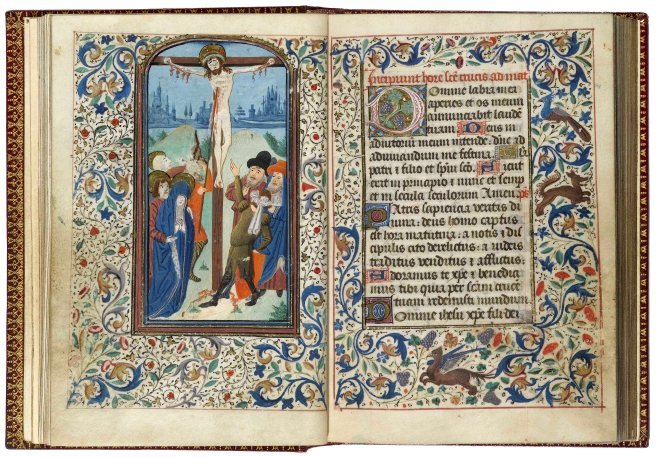 Incipiunt hore sce crucis ad mat
Domine labia mea
aperies et os meum
annunciabit laude
tuam Deus in
adiutorium meum intende. Dne ad
adiuvandum me festina Gloria
patri et filio et spiri sco. Sicut
erat in principio et nunc et semp
et in secula seculorum Amen ps
Patris sapiencia veritas di
vina: deus homo captus
est hora matutina: a notis dis
cipulis cito derelictus: a iudeis
traditus venditus et afflictus:
Adoramus te xpe et benedici
mus tibi quia per scam crucē
tuam redemisti mundum
Domine ihesu xpe fili dei